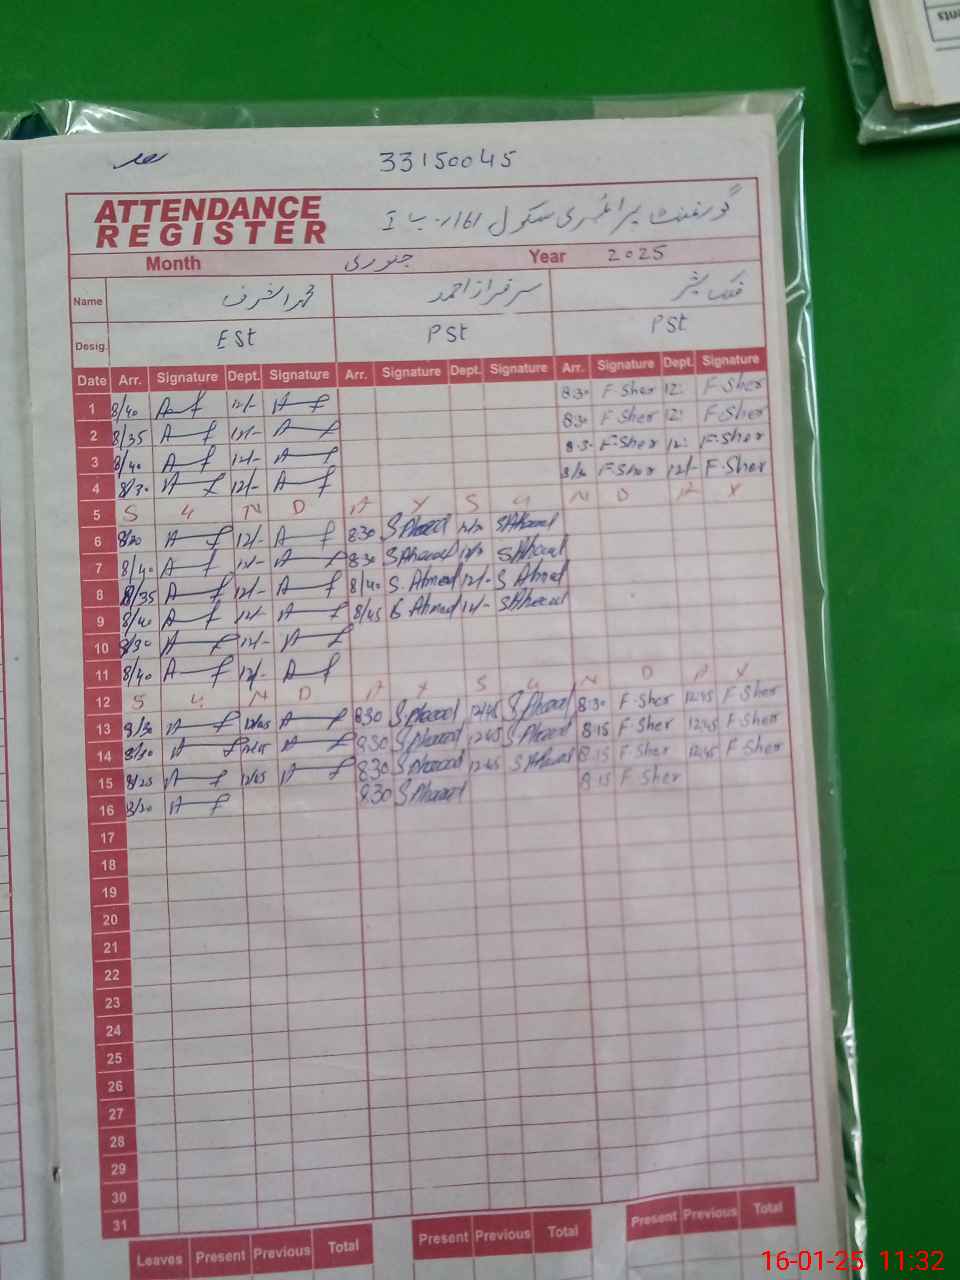 33150045
ATTENDANCE REGISTER
گورنمنٹ پرائمری سکول 161/ر۔ب I
Month جنوری Year 2025
Name محمد اشرف سرفراز احمد
Desig. ESt PSt PSt
Date Arr. Signature Dept. Signature Arr. Signature Dept. Signature Arr. Signature Dept. Signature
1 8/40 12/- 8:30 F.Sher 12: F.Sher
2 8/35 12/- 8:30 F.Sher 12: F.Sher
3 8/40 12/- 8:3- F.Sher 12: F.Sher
4 8/30 12/- F.Sher 12/- F.Sher
5 S U N D A Y S U N D A Y
6 12/- 830 S Ahmad S Ahmad
7 8/40 12/- 830 S Ahmad S Ahmad
8 8/35 12/- 8/40 S. Ahmad 12/- S Ahmad
9 8/40 12/- 8/45 S Ahmad 12/- S Ahmad
10 8/30 12/-
11 8/40 12/-
12 S U N D A Y S U N D A Y
13 8/30 12/45 830 S Ahmad 12/45 S Ahmad 8:30 F.Sher 12:45 F Sher
14 830 S Ahmad 1245 S Ahmad 8:15 F.Sher 12:45 F Sher
15 8/25 12/45 830 S Ahmad 12:45 S Ahmad 8:15 F.Sher 12:45 F Sher
16 8/20 830 S Ahmad 8:15 F Sher
17
18
19
20
21
22
23
24
25
26
27
28
29
30
31
Leaves Present Previous Total Present Previous Total Present Previous Total
16-01-25 11:32